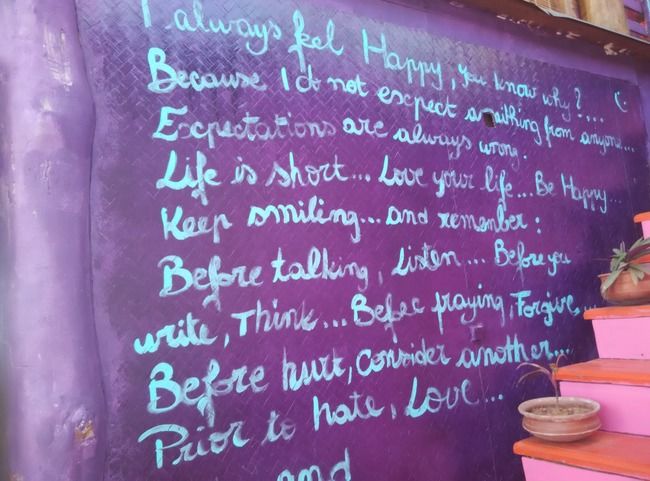 I always feel Happy, you know why?...
Because I do not escpect anaithing from anyone...
Escpectations are always wrong.
Life is short... Love your life... Be Happy...
Keep smiling... and remember:
Before talking, Listen... Before you
write, Think... Befec praying, Forgive...
Before hurt, Consider another...
Prior to hate, Love...
and